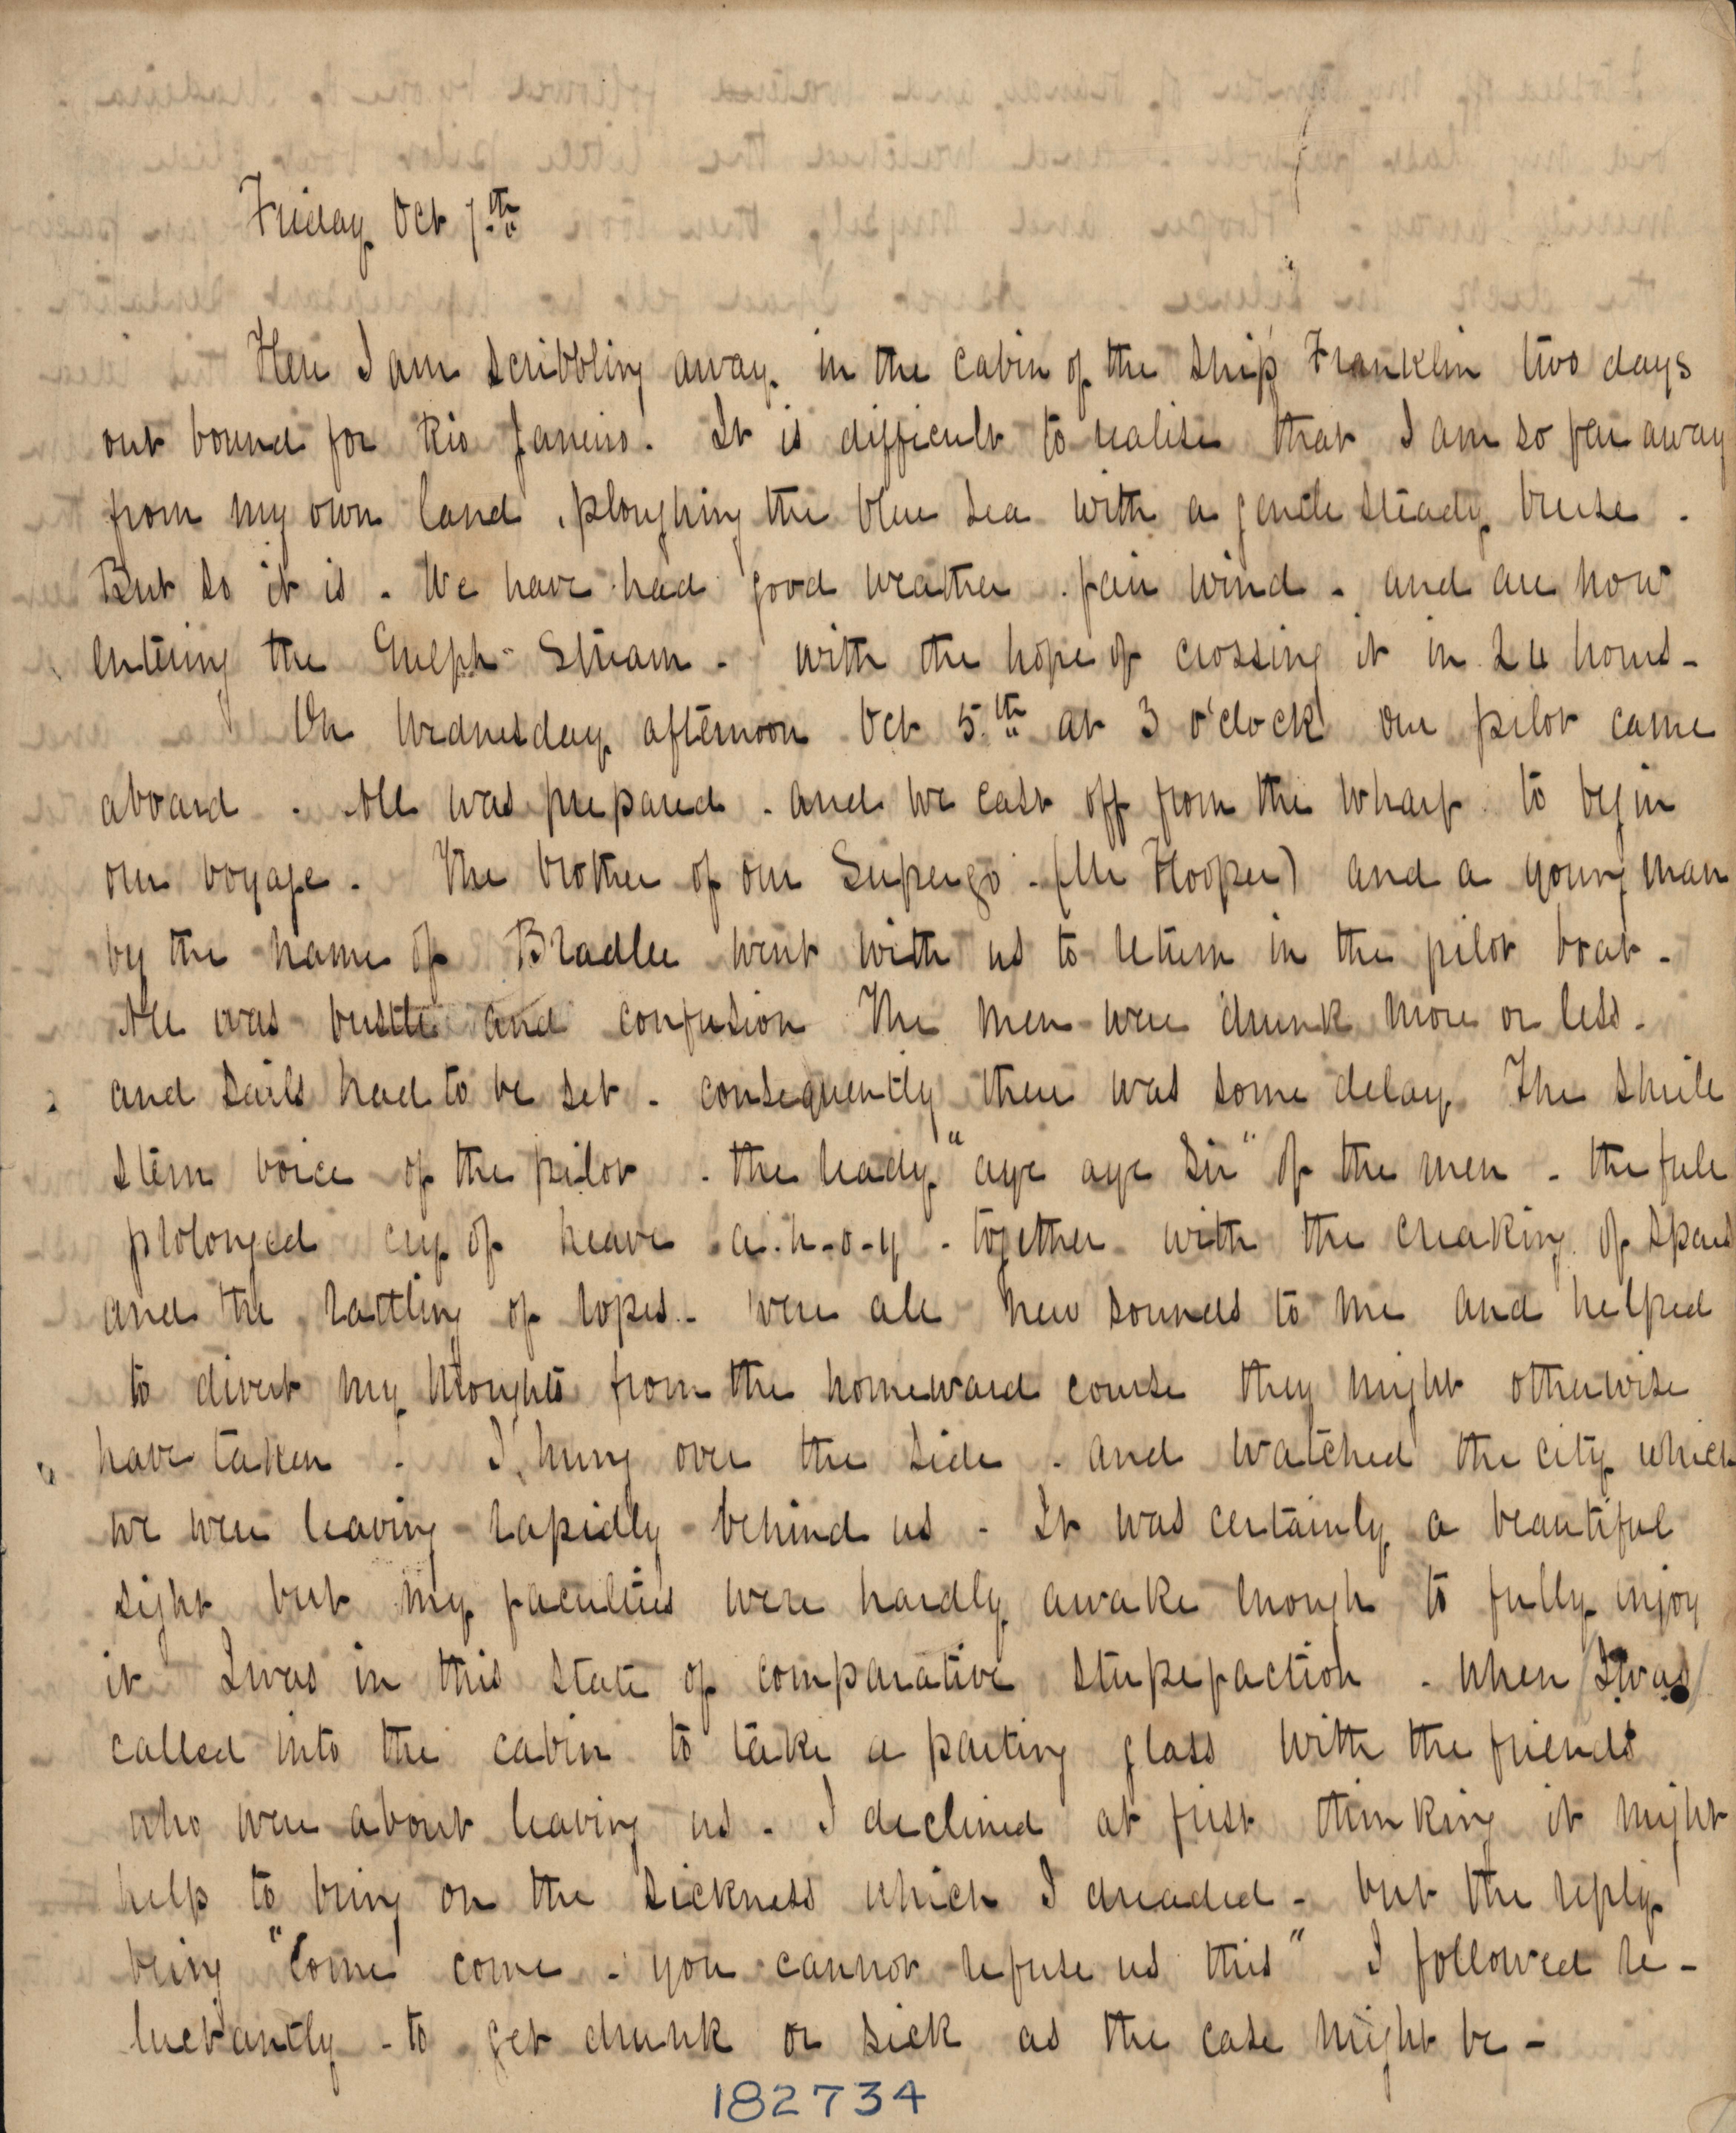 Friday Oct 7th
Here I am scribbling away in the cabin of the ship Franklin two days
out bound for Rio Janeiro. It is difficult to realise that I am so far away
from my own land, ploughing the blue sea with a gentle steady breese.
But so it is. We have had good weather. fair wind - and are now
entering the Gulph-Stream - with the hope of crossing it in 24 hours -
On Wednesday afternoon Oct 5th at 3 o'clock our pilot came
aboard. All was prepared - and we cast off from the wharf to begin
our voyage. The brother of our Supergo - (Mr Hooper) and a young man
by the name of Bradlee went with us to return in the pilot boat -
All was bustle and confusion The men were drunk more or less.
and sails had to be set - consequently there was some delay The shrill
stern voice of the pilot - the ready "aye aye sir" of the men - the full
prolonged cry of heave a-h-o-y - together with the creaking of spars
and the rattling of ropes - were all new sounds to me and helped
to divert my thoughts from the homeward course they might otherwise
have taken. I hung over the side - and watched the city which
we were leaving rapidly behind us - It was certainly a beautiful
sight but my faculties were hardly awake enough to fully injoy
it I was in this state of comparative stupefaction - when I was
called into the cabin to take a parting glass with the friends
who were about leaving us. I declined at first thinking it might
help to bring on the sickness which I dreaded - but the reply
being "Come come - you cannot refuse us this" I followed re-
luctantly - to get drunk or sick as the case might be -
182734